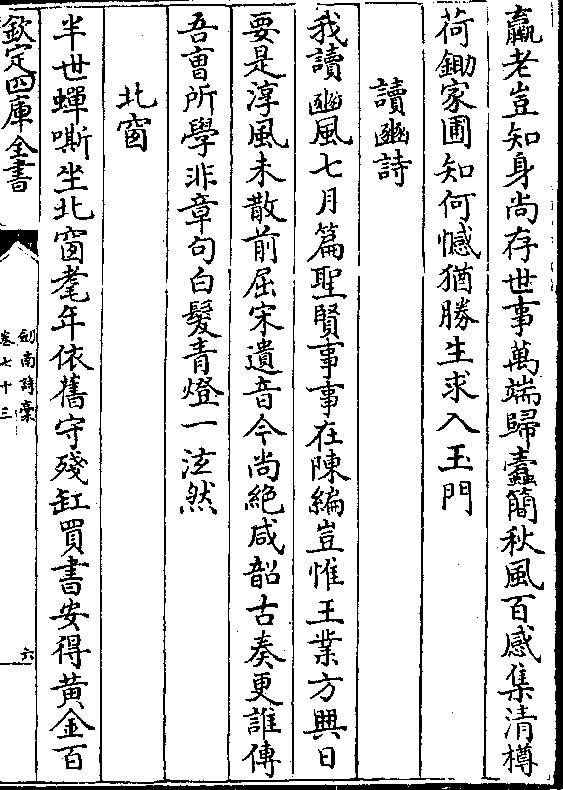 羸老豈知身尚存世事萬端歸蠹簡秋風百感集清樽
荷鋤家圃知何憾猶勝生求入玉門
讀豳詩
我讀豳風七月篇聖賢事事在陳編豈惟王業方興日
要是淳風未散前屈宋遺音今尚絶咸韶古奏更誰傳
吾曹所學非章句白髮青燈一泫然
北窗
半世蟬嘶坐北窗耄年依舊守殘缸買書安得黄金百
欽定四庫全書
劍南詩稾
卷七十三
六